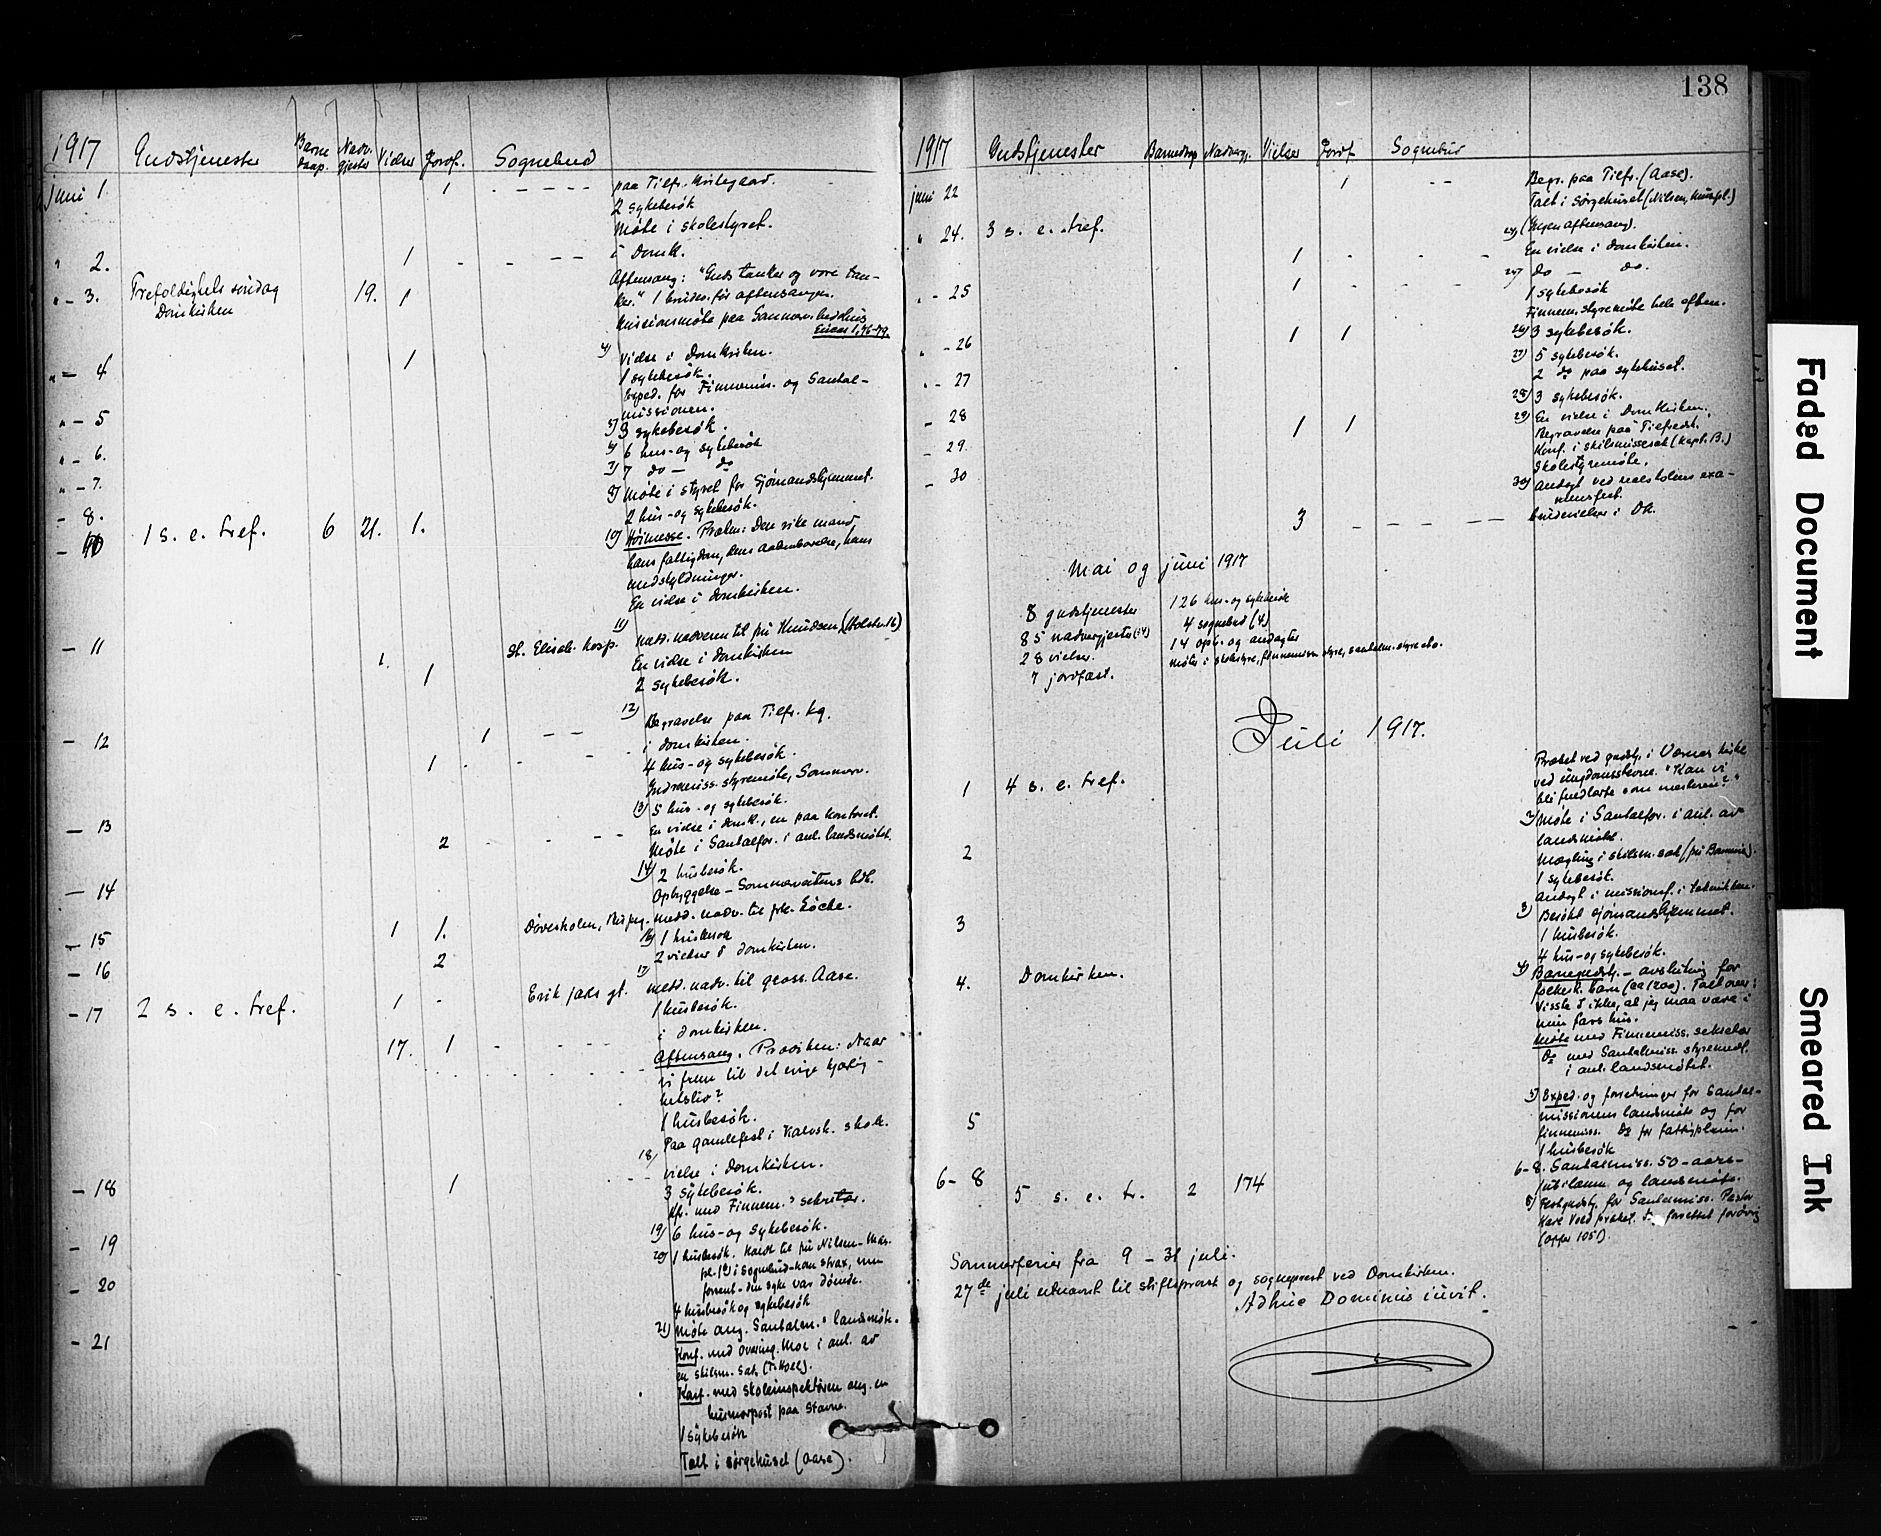 138
1917 Gudstjenester Barnedaap. Nadv.gjester Vielser Jordf. Sognebud
Juni 1. 1 paa Tilfr. kirkegaard.
2 sykebesök
Möte i skolestyret.
" 2. 1 i Domk.
" - 3. Trefoldighets söndag 19. 1 Aftensang: "Guds tanker og vore tan-
Domkirken ker." 1 brudev. för aftensangen.
Missionsmöte paa Sommerv. bedehus
" - 4 1 4) Vielse i Domkirken.
1 sykebesök.
Exped. for Finnemis. og Santal-
missionen.
" - 5 5) 3 sykebesök.
" - 6. 6) 6 hus- og sykebesök
" - 7. 7) 7 do — do
- 8. 8) Möte i styret for Sjömandshjemmet.
2 hus- og sykebesök.
- 10 1 s. e. tref. 6 21. 1. 10) Höimesse. Præken: Den rike mand
hans fattigdom, hans aabenbarelse, hans
undskyldninger.
En vielse i domkirken.
- 11 St. Elisab. hosp. 1. 11) medd. nadveren til fru Knudsen, (Holstv. 16)
1 En vielse i domkirken
2 sykebesök.
- 12 1 12) Begravelse paa Tilfr. kg.
1 i domkirken.
4 hus- og sykebesök.
Indremiss. styremöte, Sommerv.
- 13 13) 5 hus- og sykebesök.
2 En vielse i domk., en paa kontoret.
Möte i Santalfor. i anl. landsmötet.
- 14 14) 2 husbesök.
Opbyggelse - Sommerveitens bdh.
- 15 1 1. Døveskolen, medd. nadv. til frk. Löcke.
- 16 2 16) 1 husbesök
2 vielser i domkirken.
- 17 2 s. e. tref. 1 - Erik Jarls gt. 17) medd. nadv. til gross. Aase.
1 husbesök.
i domkirken.
17. 1 Aftensang. Præken: Naar
vi frem til det evige kjærlig-
hetsliv?
1 husbesök.
Paa gamlefest i Kalvsk. skole.
- 18 1 18) vielse i Domkirken.
3 sykebesök.
Kfr. med Finnem.s sekretær.
- 19 19) 6 hus- og sykebesök.
- 20 20) 1 husbesök. Kaldt til fru Nilsen - Mus-
pl. i sognebud - kom strax, men
forsent - den syke var döende.
4 husbesök og sykebesök
- 21 21) Möte ang. Santalm.s landsmöte.
Konf. med overing. Moe i anl. av
en skilsm. sak
Konf. med skoleinspektören ang. en
husmorpost paa Stavne.
1 sykebesök
Talt i sörgehuset (Aase).
1917 Gudstjenester Barnedaap Nadverg. Vielser Jordf. Sognebud
juni 22 1 Begr. paa Tilfr. (Aase).
Talt i sörgehuset (Nilsen, Muspl.)
" 24. 3 s. e. tref. 24) (Ingen aftensang).
1 En vielse i domkirken.
" - 25 1 25) do — do.
1 sykebesök
Finnem. styremöte hele aften.
" - 26 1 1 26) 3 sykebesök.
" - 27 27) 5 sykebesök.
2 do paa sykehuset.
- 28 28) 3 sykebesök.
- 29. 1 1 29) En vielse i Domkirken.
Begravelse paa Tilfredsh.
Konf. i skilsmissesak (kapt. B.)
Skolestyremöte.
- 30 30) Andagt ved realskolens exa-
mensfest.
3 brudevielser i DK.
Mai og juni 1917
8 gudstjenester 126 hus- og sykebesök
85 nadvergjester (14) 4 sognebud (4)
28 vielser. 14 opb. og andagter
7 jordfæst. möter i skolestyre, finnemission styre, santalm. styre etc.
Juli 1917.
1 4 s. e. tref. Præket ved gudstj. i Værnes kirke
ved ungdomsstevne. "Kan vi
bli fuldlærte som mesteren?"
2 2) Möte i Santalfor. i anl. av
landsmötet.
Mægling i skilsm. sak
1 sykebesök.
Andagt i missionsf. i Sakristien.
3 3) Besökt sjömandshjemmet.
1 husbesök.
4 hus- og sykebesök.
4. Domkirken. 4) Barnegudstj. - avslutning for
folkesk. barn (ca 1200). Talt over:
Visste I ikke, at jeg maa være i
min fars hus.
Möte med Finnemiss. sekretær
Do med Santalmiss. styremedl.
i anl. landsmötet.
5 5) Exped. og forretninger for Santal-
missionens landsmöte og for
finnemiss. Do for fattigpleien.
1 husbesök
6 - 8 6-8. Santalmiss. 50-aars-
jubilæum og landsmöte.
5 s. e. tr. 2 174 8) Festgudstj. for Santalmiss. Pastor
Kare Vold præket. forrettet forövrig
(offer 105).
Sommerferier fra 9 - 31 juli.
27de juli utnævnt til stiftsprovst og sogneprest ved Domkirken.
Adhuc Dominus iuvit.
Faded Document
Smeared Ink